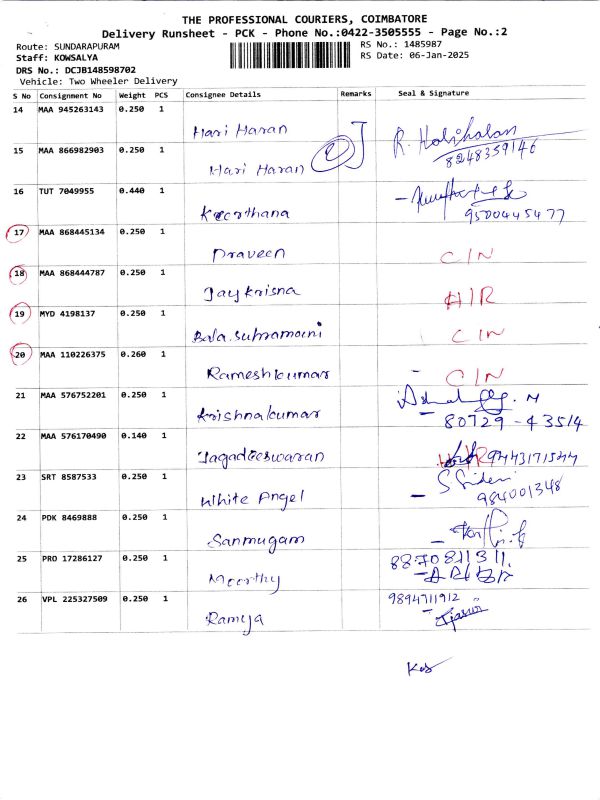 THE PROFESSIONAL COURIERS, COIMBATORE
Delivery Runsheet - PCK - Phone No.:0422-3505555 - Page No.:2
Route: SUNDARAPURAM
RS No.: 1485987
Staff: KOWSALYA
RS Date: 06-Jan-2025
DRS No.: DCJB148598702
Vehicle: Two Wheeler Delivery
S No Consignment No Weight PCS Consignee Details Remarks Seal & Signature
14 MAA 945263143 0.250 1
Hari Haran R. Harihalan
8248359146
15 MAA 866982903 0.250 1
Hari Haran
16 TUT 7049955 0.440 1
Keerthana 9500445477
17 MAA 868445134 0.250 1
Praveen CIN
18 MAA 868444787 0.250 1
Jaykrisna HIR
19 MYD 4198137 0.250 1
Bala.subramaini CIN
20 MAA 110226375 0.260 1
Rameshkumar CIN
21 MAA 576752201 0.250 1
Krishnakumar 80729-43514
22 MAA 576170490 0.140 1
Jagadeeswaran 9443171544
23 SRT 8587533 0.250 1
White Angel 984001348
24 PDK 8469888 0.250 1
Sanmugam
25 PRO 17286127 0.250 1 8870811311
Moorthy
26 VPL 225327509 0.250 1 9894711912
Ramya